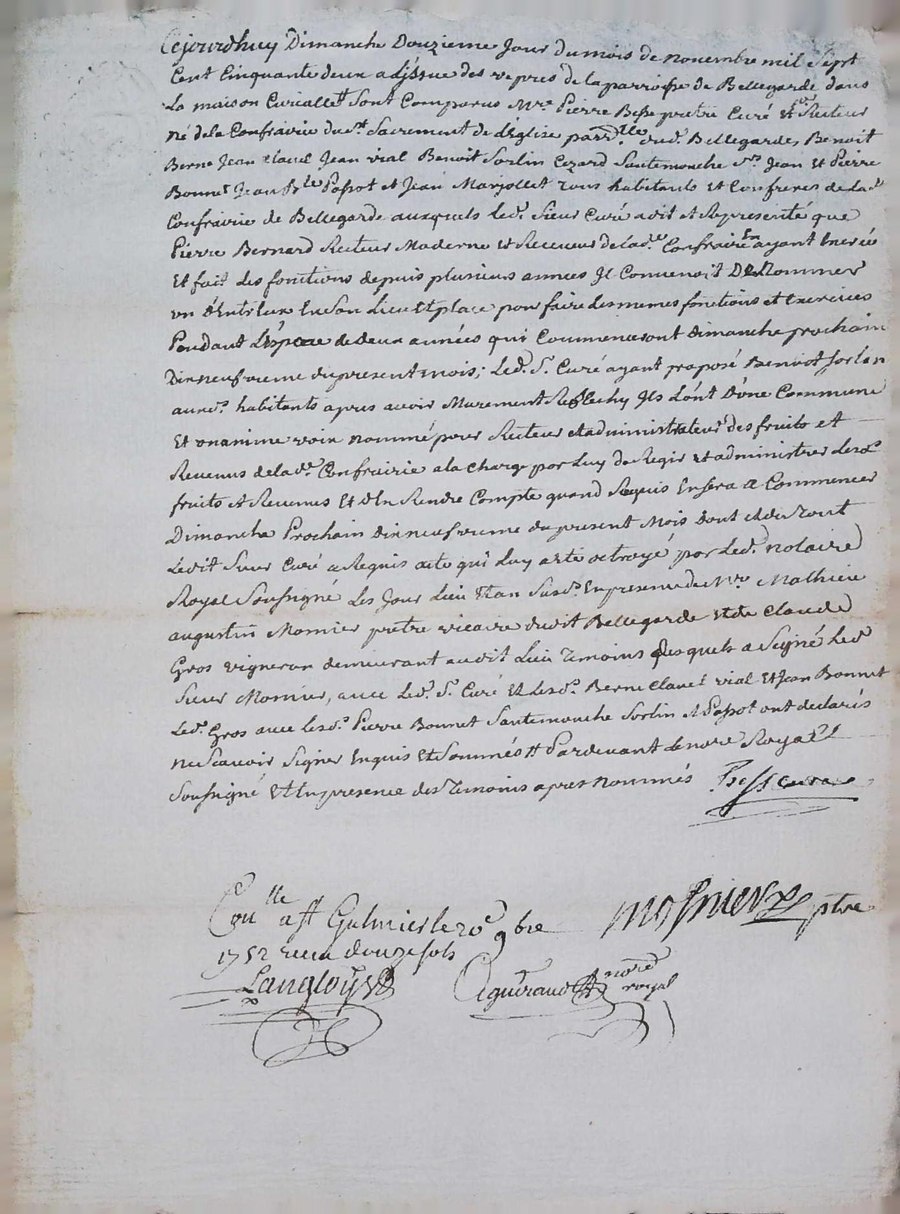 Cejourdhuy Dimanche Douzieme Jour du mois de novembre mil Sept
Cent Cinquante deux a l'issue des vepres de la parroisse de Bellegarde dans
La maison Curialle Sont Comparus Mre Pierre Besse pretre Curé et Recteur
né de la Confrairie du St Sacrement de L'Eglise parr.lle dud. Bellegarde, Benoit
Berne Jean Claud Jean vial Benoit Sorlin Cezard Santemouche Jean Et Pierre
Bonnet Jean Papot et Jean Marjollet tous habitants et Confreres de lad.e
Confrairie de Bellegarde auxquels led. Sieur Curé a dit et Representé que
Pierre Bernard Recteur Moderne et Receveur de lad.e Confrairie En ayant Exercé
Et fait des fonctions depuis plusieurs années Il Convenoit De Nommer
un d'Entr'Eux En Son Lieu Et place pour faire des memes fonctions et Exercices
Pendant L'espace de deux années qui Commenceront Dimanche prochain
Dixneufvieme du present mois; Led. S. Curé ayant proposé Benoit Sorlin
auxd. habitants apres avoir Murement Reflechy Ils L'ont D'une Commune
Et unanime voix nommé pour Recteur et administrateur des fruits et
Revenus de lad.e Confrairie a la Charge par Luy de Regir et administrer Lesd.
fruits et Revenus Et d'En Rendre Compte quand Requis En sera a Commencer
Dimanche Prochain dixneufvieme du present Mois Dont et du tout
Ledit Sieur Curé a Requis acte qui Luy a eté octroyé par Led. Notaire
Royal Soussigné Les Jour Lieu Et an Susd. En presence de Mre Mathieu
augustin Monier pretre vicaire dudit Bellegarde et de Claude
Gros vigneron demeurant audit Lieu temoins desquels a Signé Led.
Sieur Monier, avec Led. S. Curé Et Lesd. Berne Claud vial Et Jean Bonnet
Led. Gros avec lesd. Pierre Bonnet Santemouche Sorlin et Papot ont declarés
ne Scavoir Signer Enquis Et Sommés Pardevant Le nore Royal
Soussigné Et En presence des temoins apres nommés
Besse curé
Conlle a St Galmier le 20e 9bre
1752 recu douze sols
Monier ptre
Langloys
nore
royal